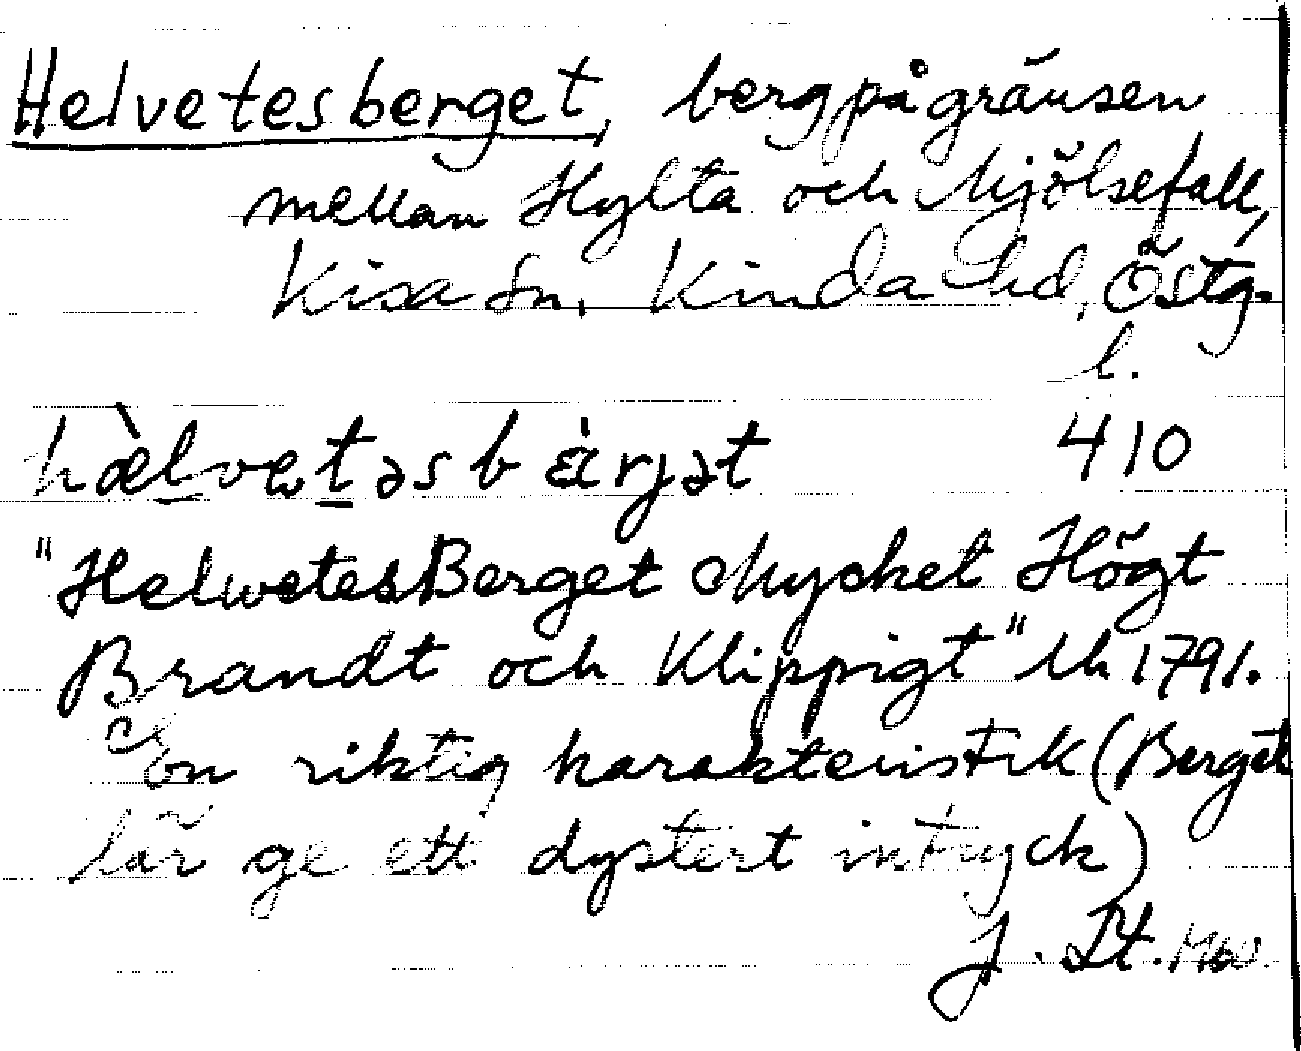 Helvetesberget, berg på gränsen
mellan Hylta och Mjölsefall,
Kisa sn, Kinda hd, Östg.
l.
hælvetəsbärjət 410
"HelwetesBerget Mycket Högt
Brandt och Klippigt" Uh 1791.
En riktig karakteristik (Berget
lär ge ett dystert intryck)
J. St.